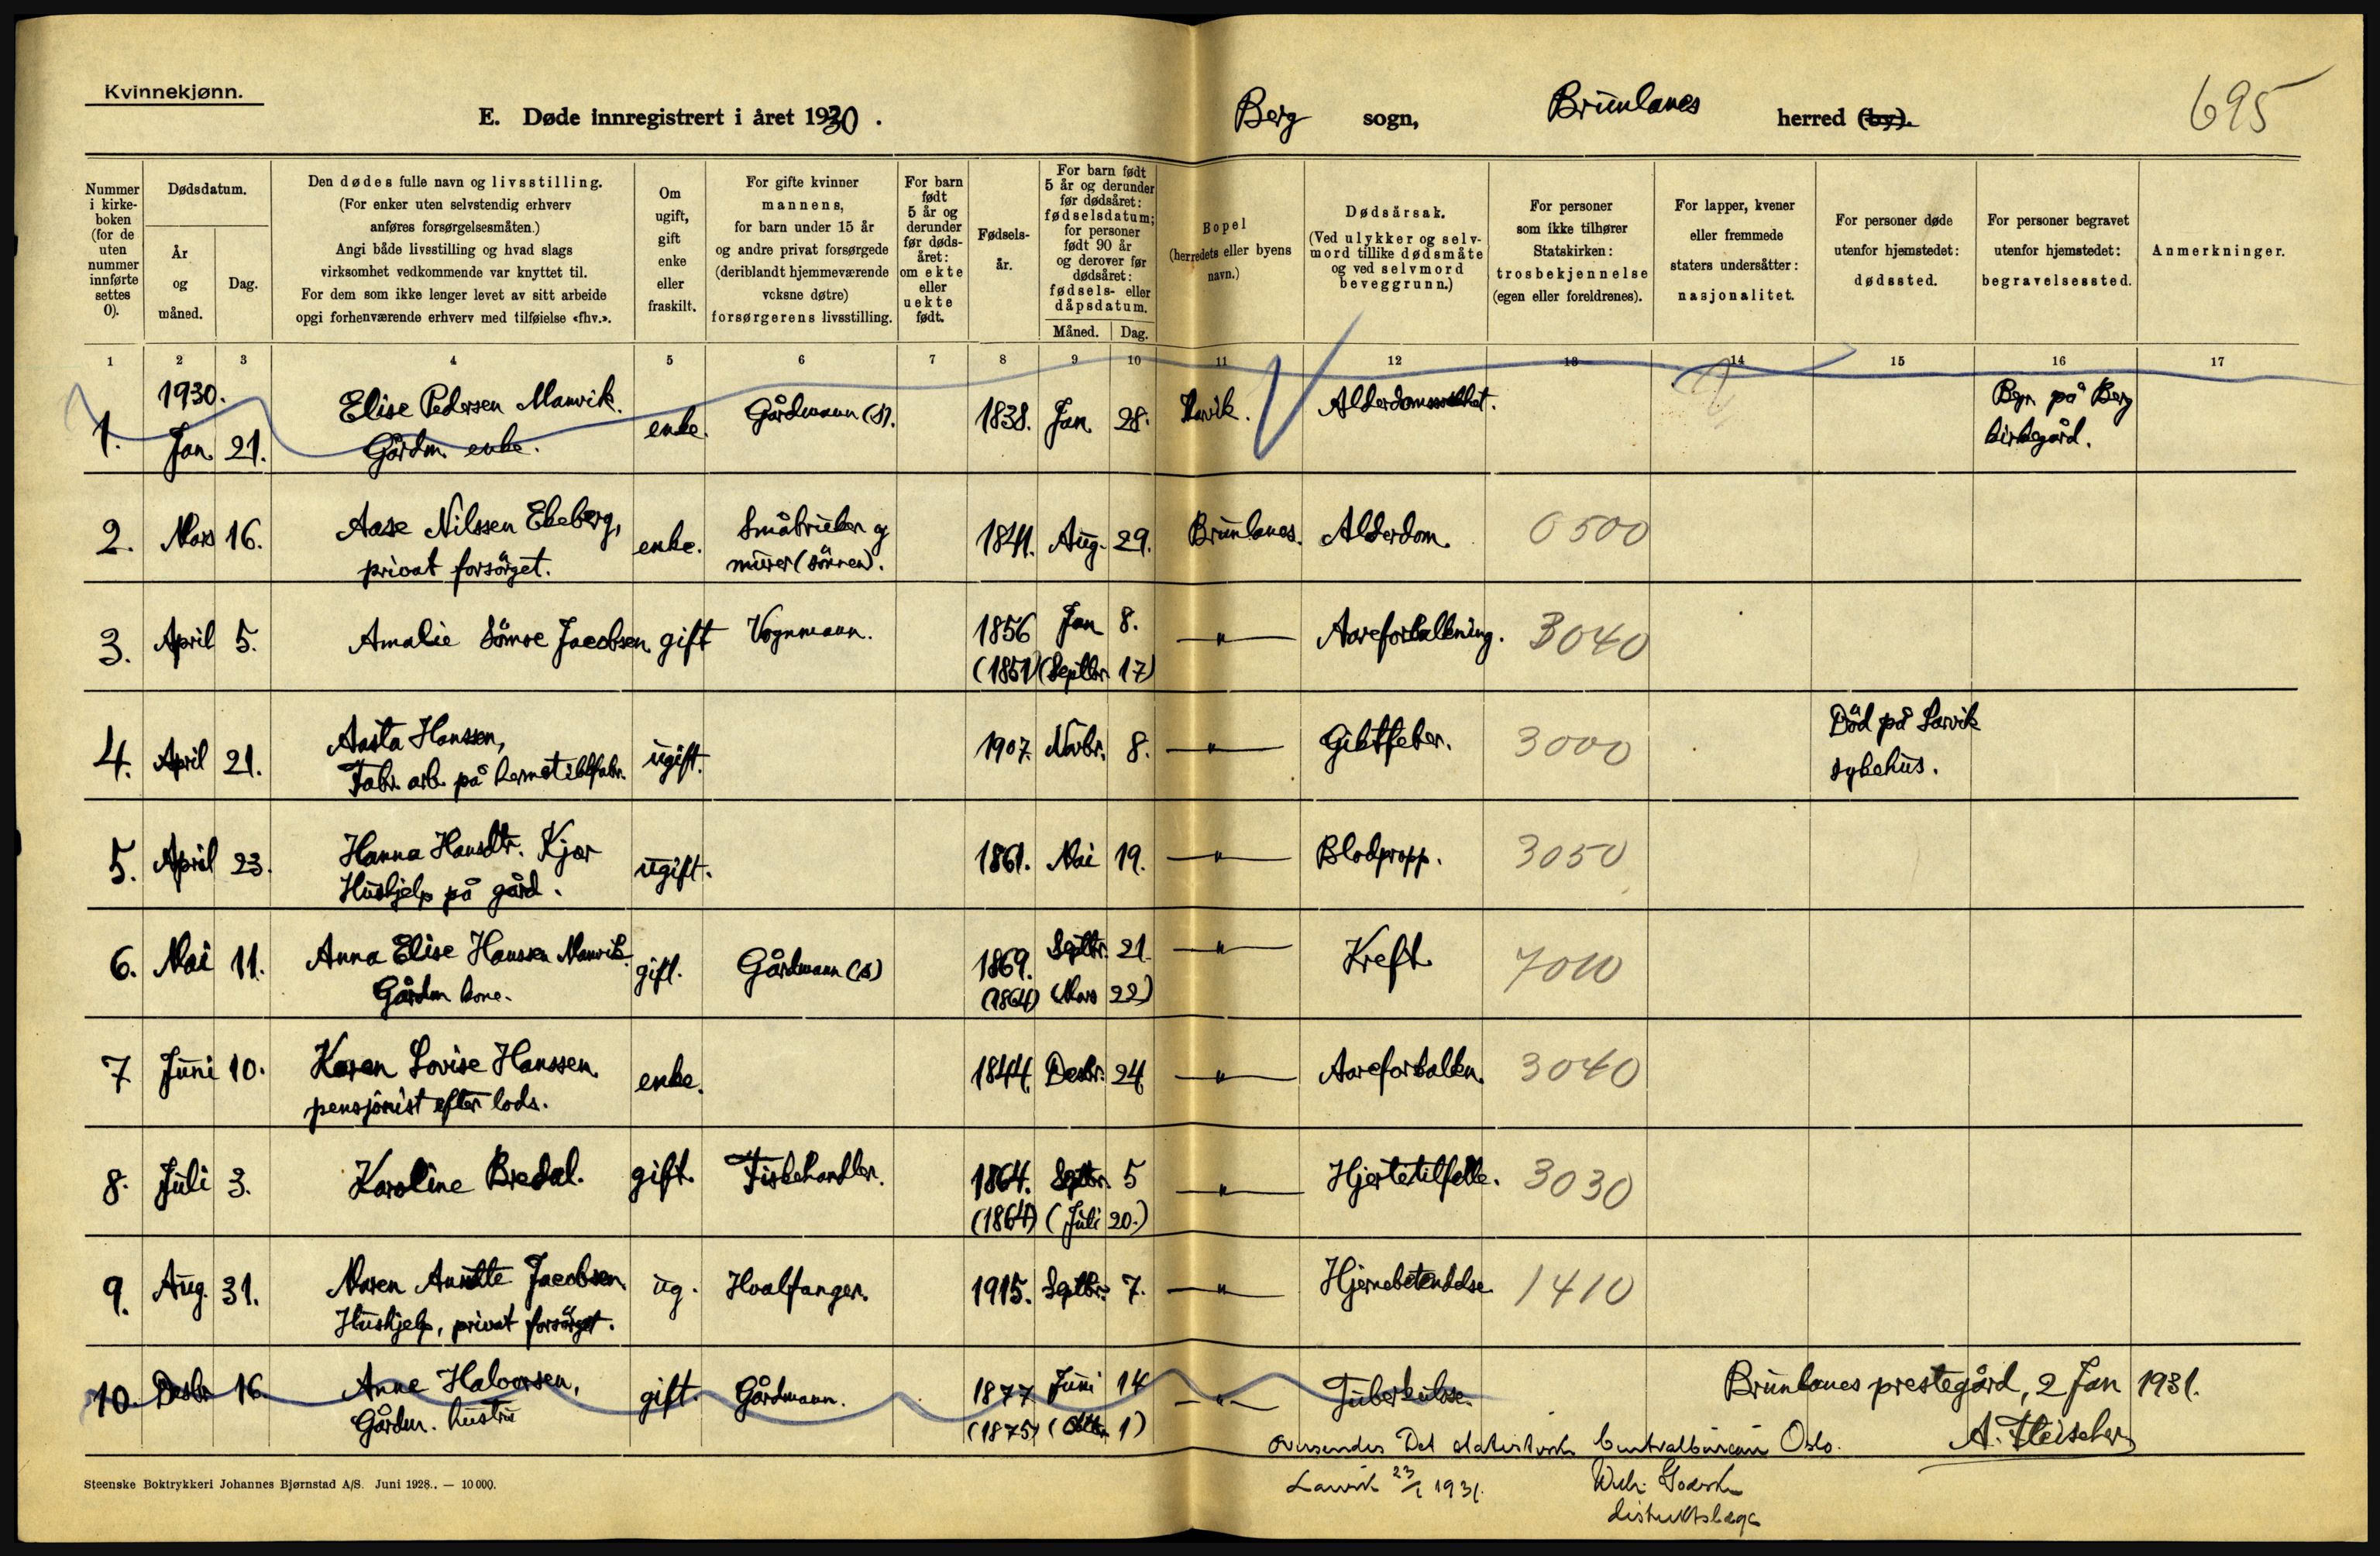 Kvinnekjønn.
E. Døde innregistrert i året 1930.
Berg sogn, Brunlanes herred (by).
695
Nummer i kirkeboken (for de uten nummer innførte settes 0).
Dødsdatum.
År og måned.
Dag.
Den dødes fulle navn og livsstilling.
(For enker uten selvstendig erhverv
anføres forsørgelsesmåten.)
Angi både livsstilling og hvad slags
virksomhet vedkommende var knyttet til.
For dem som ikke lenger levet av sitt arbeide
opgi forhenværende erhverv med tilføielse «fhv.».
Om ugift, gift enke eller fraskilt.
For gifte kvinner
mannens,
for barn under 15 år
og andre privat forsørgede
(deriblandt hjemmeværende
voksne døtre)
forsørgerens livsstilling.
For barn født 5 år og derunder før dødsåret: om ekte eller uekte født.
Fødselsår.
For barn født 5 år og derunder før dødsåret: fødselsdatum; for personer født 90 år og derover før dødsåret: fødsels- eller dåpsdatum.
Måned. Dag.
Bopel
(herredets eller byens navn.)
Dødsårsak.
(Ved ulykker og selvmord tillike dødsmåte og ved selvmord beveggrunn.)
For personer
som ikke tilhører
Statskirken:
trosbekjennelse
(egen eller foreldrenes).
For lapper, kvener
eller fremmede
staters undersåtter:
nasjonalitet.
For personer døde
utenfor hjemstedet:
dødssted.
For personer begravet
utenfor hjemstedet:
begravelsessted.
Anmerkninger.
1 2 3 4 5 6 7 8 9 10 11 12 13 14 15 16 17
1930.
1. Jan. 21. Elise Pedersen Manvik. enke. Gårdmann (s). 1838. Jan. 28. Larvik. Alderdomssvakhet. Begr. på Berg
Gårdm. enke. kirkegård.
2. Mars 16. Aase Nilssen Ekeberg, enke. Småbruker og 1841. Aug. 29. Brunlanes. Alderdom. 0500
privat forsörget. murer (sönnen).
3. April 5. Amalie Sömoe Jacobsen. gift Vognmann. 1856 Jan 8. —"— Aareforkalkning. 3040
(1851) (Septbr. 17)
4. April 21. Aasta Hanssen, ugift. 1907. Novbr. 8. —"— Giktfeber. 3000 Död på Larvik
Fabr. arb. på hermetikkfabr. sykehus.
5. April 23. Hanna Hansdtr. Kjær ugift. 1861. Mai 19. —"— Blodpropp. 3050
Hushjelp på gård.
6. Mai 11. Anna Elise Hanssen Manvik. gift. Gårdmann (s) 1869. Septbr. 21. —"— Kreft 7010
Gårdm. kone. (1864) (Mars 22)
7 Juni 10. Karen Lovise Hanssen. enke. 1844. Desbr. 24. —"— Aareforkalkn. 3040
pensjonist efter lods.
8. Juli 3. Karoline Bredal. gift. Fiskehandler. 1864. Septbr. 5 —"— Hjertetilfelle. 3030
(1864) (Juli 20.)
9. Aug. 31. Maren Anette Jacobsen. ug. Hvalfanger. 1915. Septbr. 7. —"— Hjernebetendelse. 1410
Hushjelp, privat forsörget.
10. Desbr. 16. Anne Halvorsen, gift. Gårdmann. 1877 Juni 14 —"— Tuberkulose.
Gårdm. hustru (1875) (Oktbr. 1)
Brunlanes prestegård, 2 Jan 1931.
A. Fleischer
Oversendes Det statistiske Centralbureau Oslo.
Larvik 23/1 1931.
distriktslæge
Steenske Boktrykkeri Johannes Bjørnstad A/S. Juni 1928.. — 10 000.